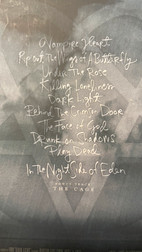 A Vampire Heart
Rip Out The Wings of A Butterfly
Under The Rose
Killing Loneliness
Dark Light
Behind The Crimson Door
The Face of God
Drunk on Shadows
Play Dead
In The Night Side of Eden
BONUS TRACK
THE CAGE